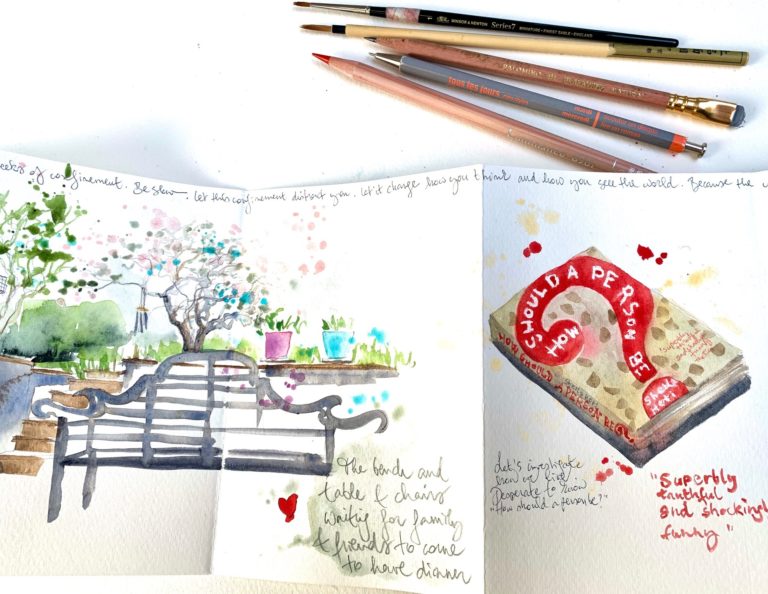 WINSOR & NEWTON Series 7 MINIATURE · FINEST SABLE · ENGLAND
PALOMINO
tous les jours
mardi
mercredi
of confinement. Be slow - let this confinement distract you. Let it change how you think and how you see the world. Because the
HOW SHOULD A PERSON BE
Sheila
Heti
HOW SHOULD A PERSON BE
The bench and
table & chairs
waiting for family
& friends to come
to have dinner
Let's investigate
how we live
Desperate to know
"How should a person be?"
"Superbly
truthful
and shockingly
funny"